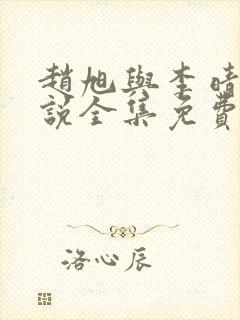 趙旭與李晴
說全集免費
洛心辰